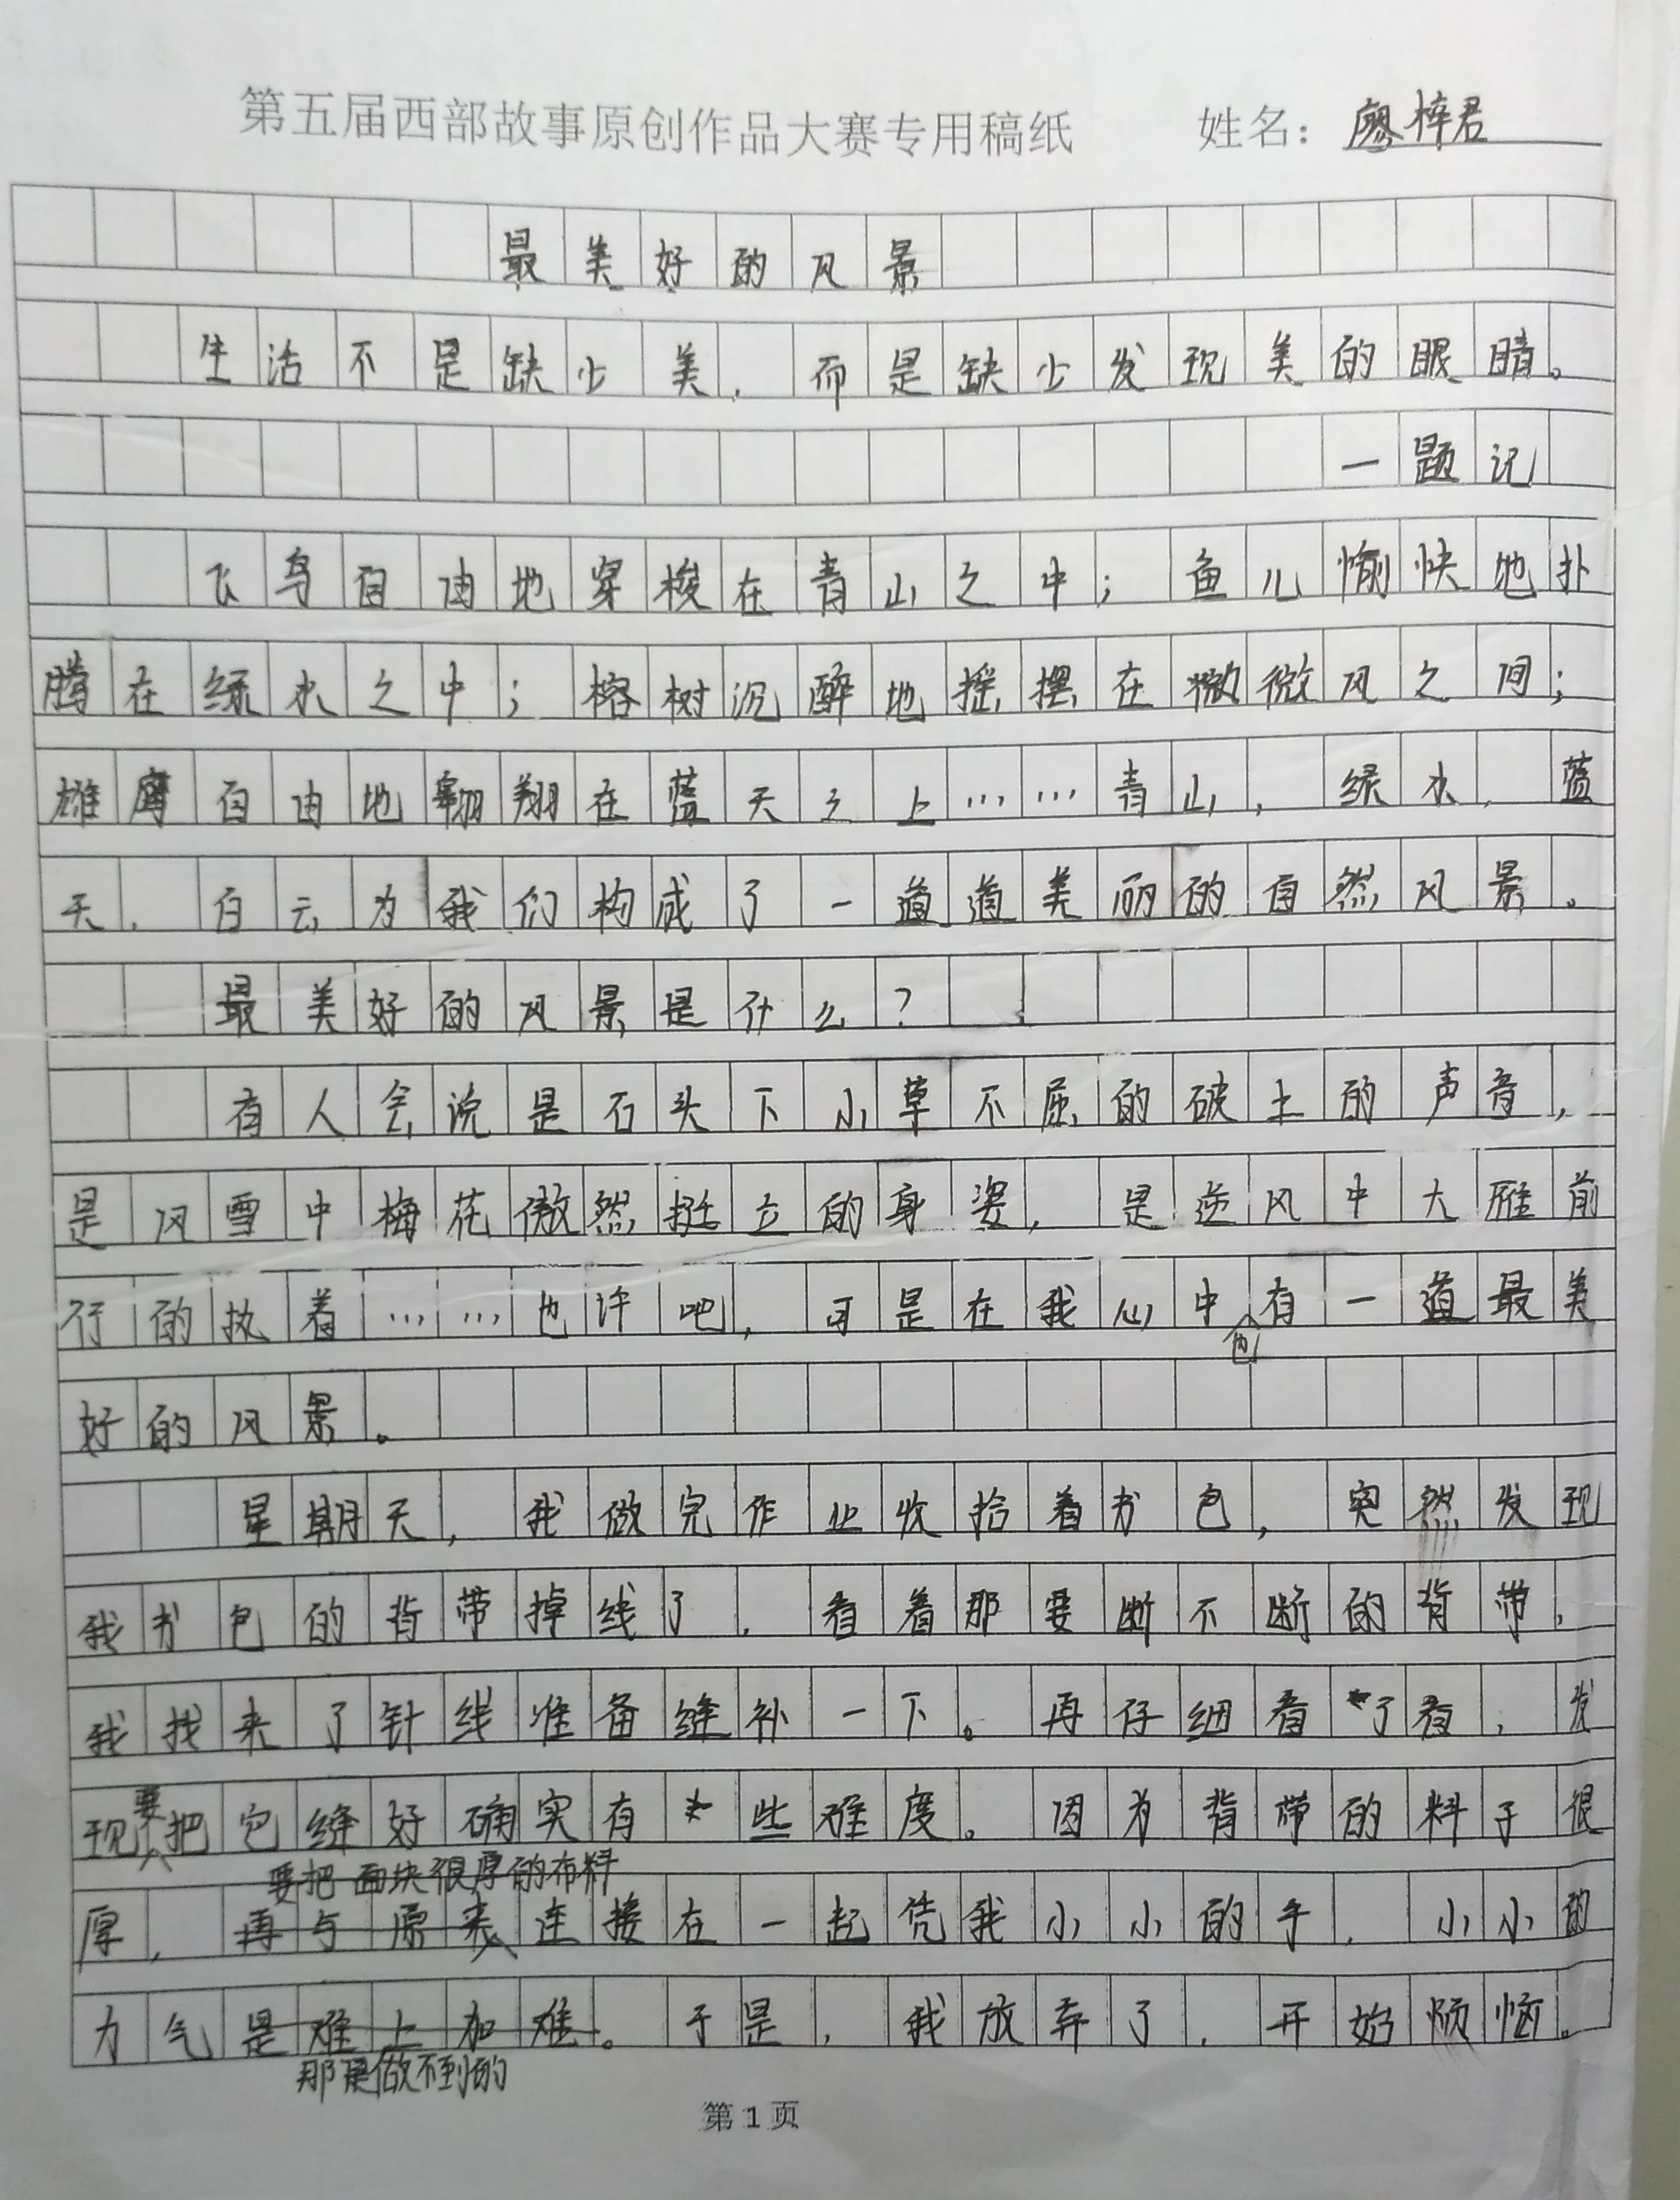 第五届西部故事原创作品大赛专用稿纸 姓名：廖梓君
最美好的风景
生活不是缺少美，而是缺少发现美的眼睛。
—题记
飞鸟自由地穿梭在青山之中；鱼儿愉快地扑
腾在绿水之中；榕树沉醉地摇摆在微微风之间；
雄鹰自由地翱翔在蓝天之上……青山，绿水，蓝
天，白云为我们构成了一道道美丽的自然风景。
最美好的风景是什么？
有人会说是石头下小草不屈的破土的声音，
是风雪中梅花傲然挺立的身姿，是逆风中大雁前
行的执着……也许吧，可是在我心中也有一道最美
好的风景。
星期天，我做完作业收拾着书包，突然发现
我书包的背带掉线了，看着那要断不断的背带，
我找来了针线准备缝补一下。再仔细看了看，发
现要把包缝好确实有些难度。因为背带的料子很
要把两块很厚的布料
厚，再与原来连接在一起凭我小小的手，小小的
力气是难上加难。于是，我放弃了，开始烦恼。
那是做不到的
第1页